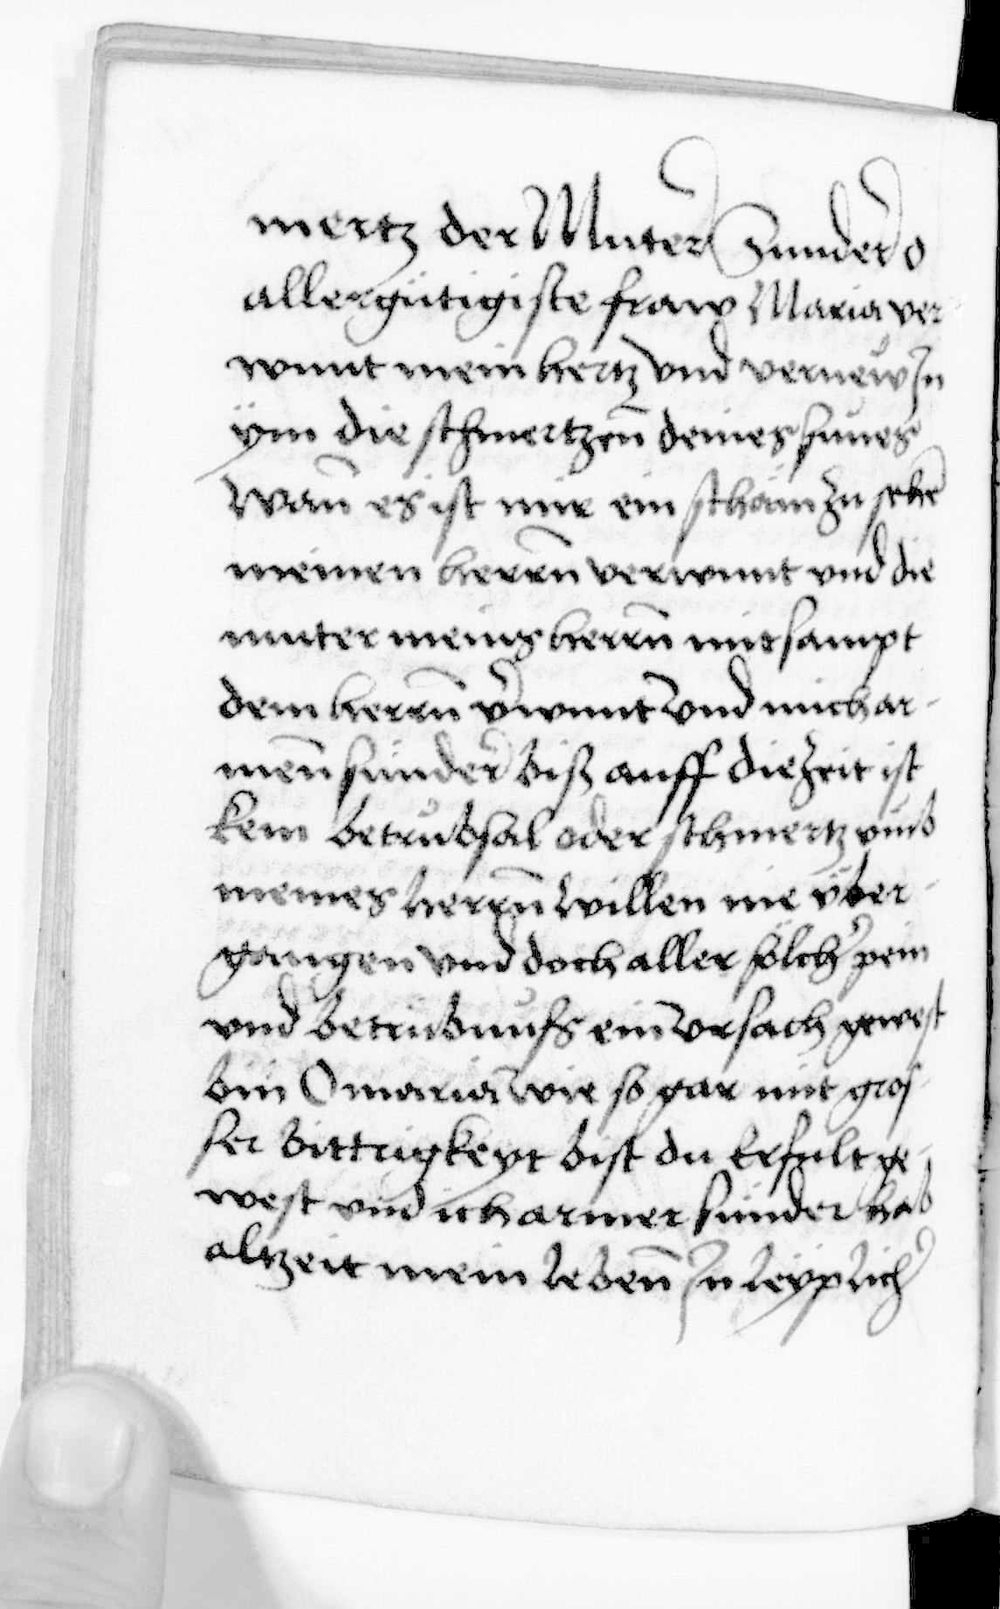 mertz der Muter Sunder o
allergütigiste fraw Maria ver
wunt mein hertz vnd vernew In
ÿm die schmertzen̄ deines sunes
Wan̄ es ist mir ein scham zu sehē
meinen herrn̄ verwunt vnd die
muter meins herrn̄ mit sampt
dem herrn̄ v̓wunt vnd mich ar-
men̄ sünder biß auff die zeit ist
kein betrůbsal oder schmertz vmb
meines herrn̄ willen nie über-
gangen vnd doch aller sölcher pein
vnd betrübnuss ein vrsach gewest
bin O maria wie so gar mit gros-
ser bittrigkeyt bist du Erfült ge-
west vnd ich armer sünder hab
altzeit mein leben̄ In leÿplicher